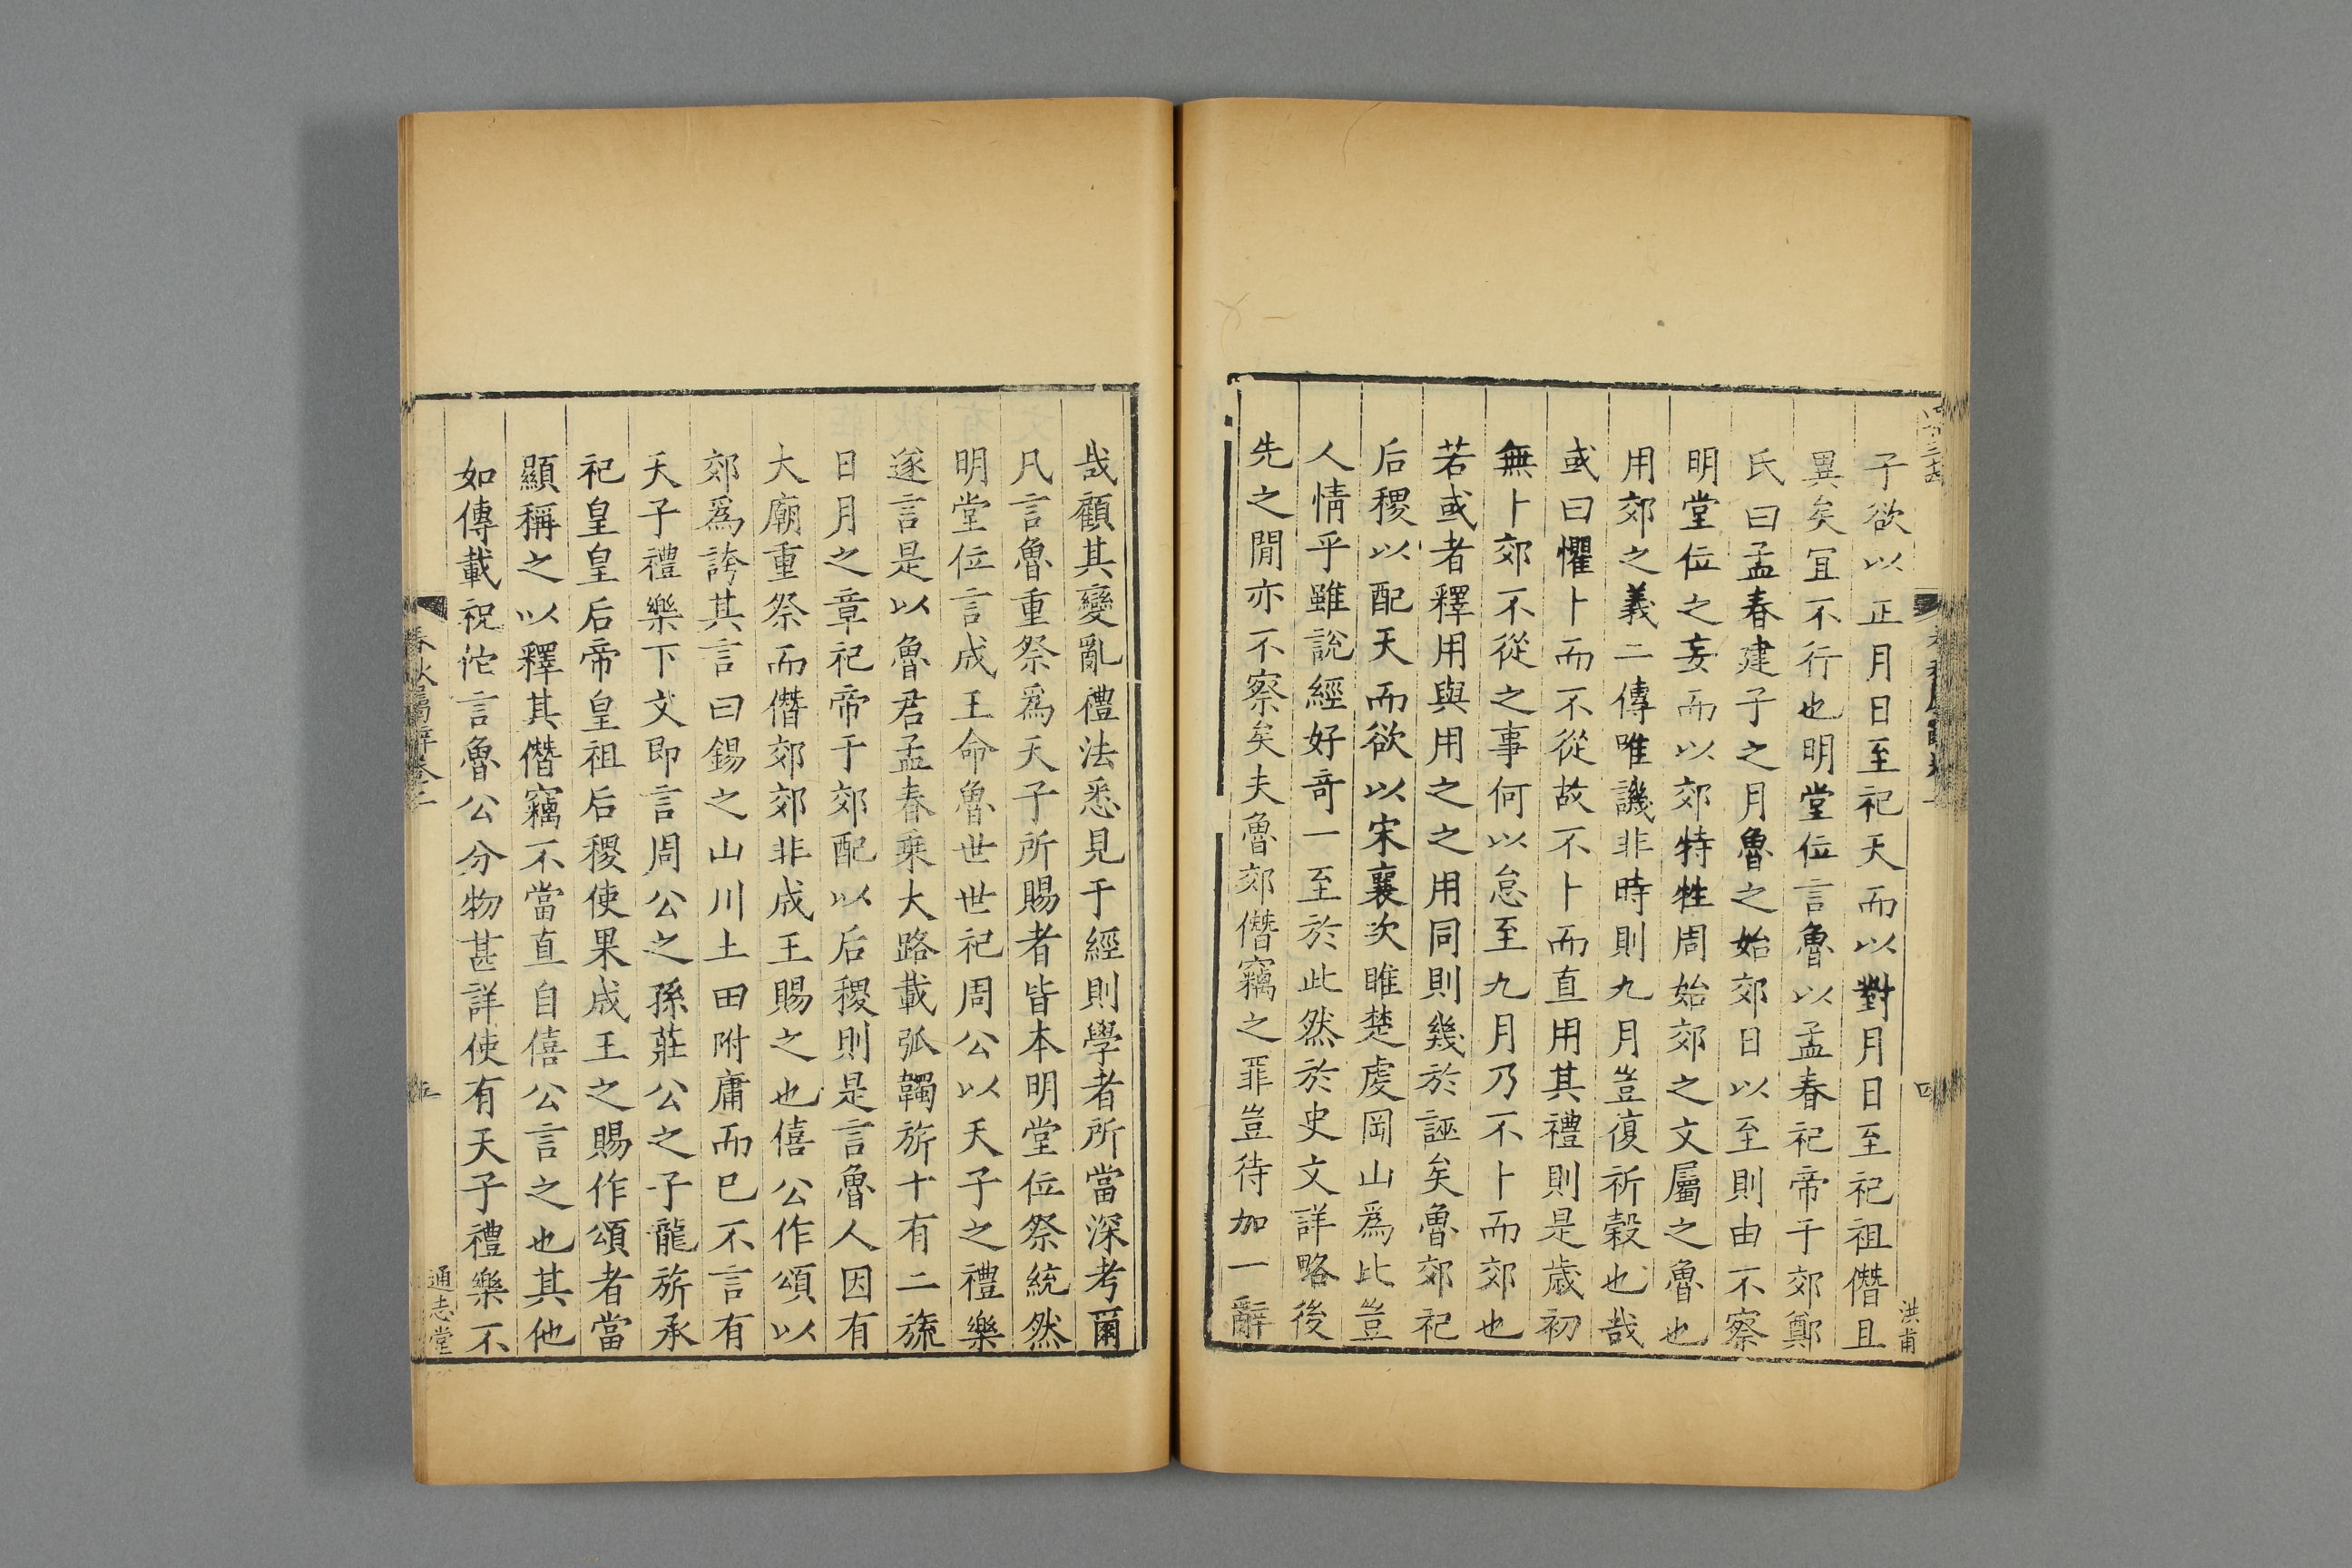 子欲以正月日至祀天而以對月日至祀祖僭且
異矣宜不行也明堂位言魯以孟春祀帝于郊鄭
氏曰孟春建子之月魯之始郊日以至則由不察
明堂位之妄而以郊特牲周始郊之文屬之魯也
用郊之義二傳唯譏非時則九月豈復祈穀也哉
或曰懼卜而不從故不卜而直用其禮則是歲初
無卜郊不從之事何以怠至九月乃不卜而郊也
若或者釋用與用之之用同則幾於誣矣魯郊祀
后稷以配天而欲以宋襄次睢楚虔岡山爲比豈
人情乎雖說經好竒一至於此然於史文詳略後
先之閒亦不察矣夫魯郊僭竊之罪豈待加一辭
四
洪甫
哉顧其變亂禮法悉見于經則學者所當深考爾
凡言魯重祭爲天子所賜者皆本明堂位祭統然
明堂位言成王命魯世世祀周公以天子之禮樂
遂言是以魯君孟春乗大路載弧韣旂十有二旒
日月之章祀帝于郊配以后稷則是言魯人因有
大廟重祭而僭郊郊非成王賜之也僖公作頌以
郊爲誇其言曰錫之山川土田附庸而已不言有
天子禮樂下文即言周公之孫莊公之子龍旂承
祀皇皇后帝皇祖后稷使果成王之賜作頌者當
顯稱之以釋其僭竊不當直自僖公言之也其他
如傳載祝佗言魯公分物甚詳使有天子禮樂不
春秋屬辭卷二
通志堂